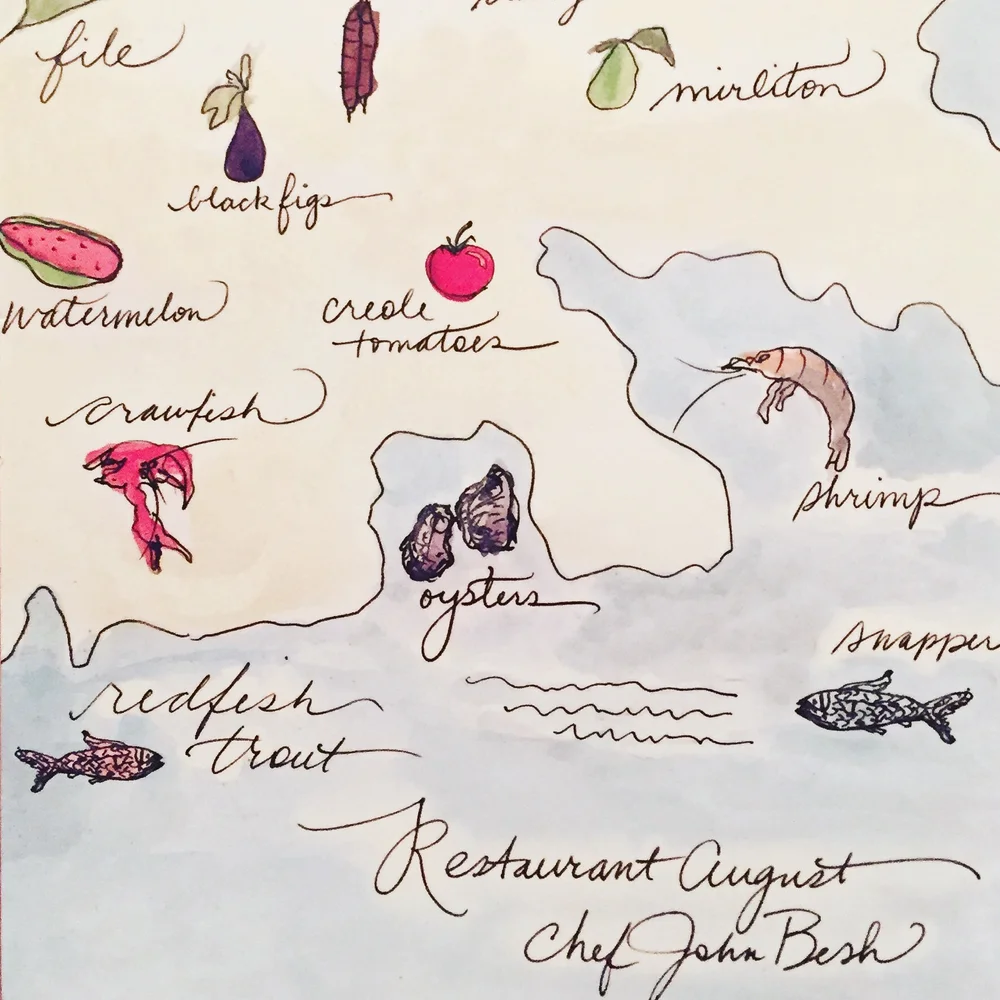 file
mirliton
black figs
watermelon
creole
tomatoes
crawfish
shrimp
oysters
snapper
redfish
trout
Restaurant August
Chef John Besh